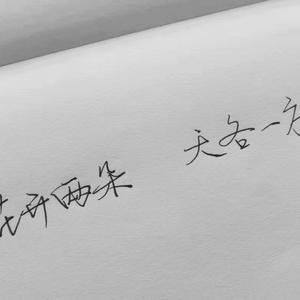 花开两朵 天各一方